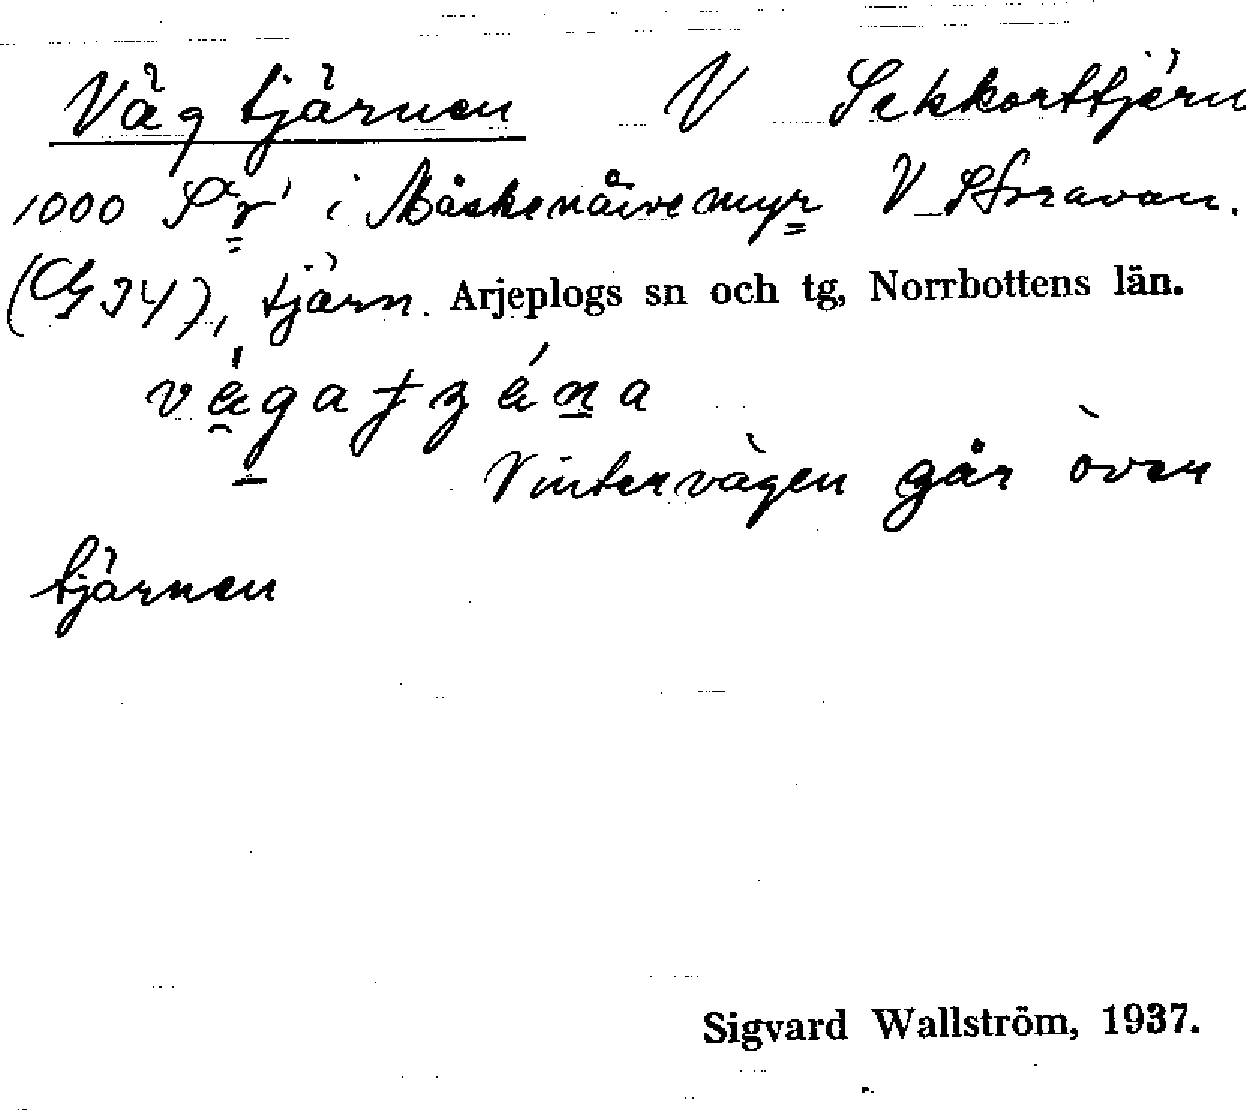 Vägtjärnen V Sekkorttjärn
1000 i Måskenåivemyr V Storavan.
(G 34), tjärn. Arjeplogs sn och tg, Norrbottens län.
Vintervägen går över
tjärnen
Sigvard Wallström, 1937.